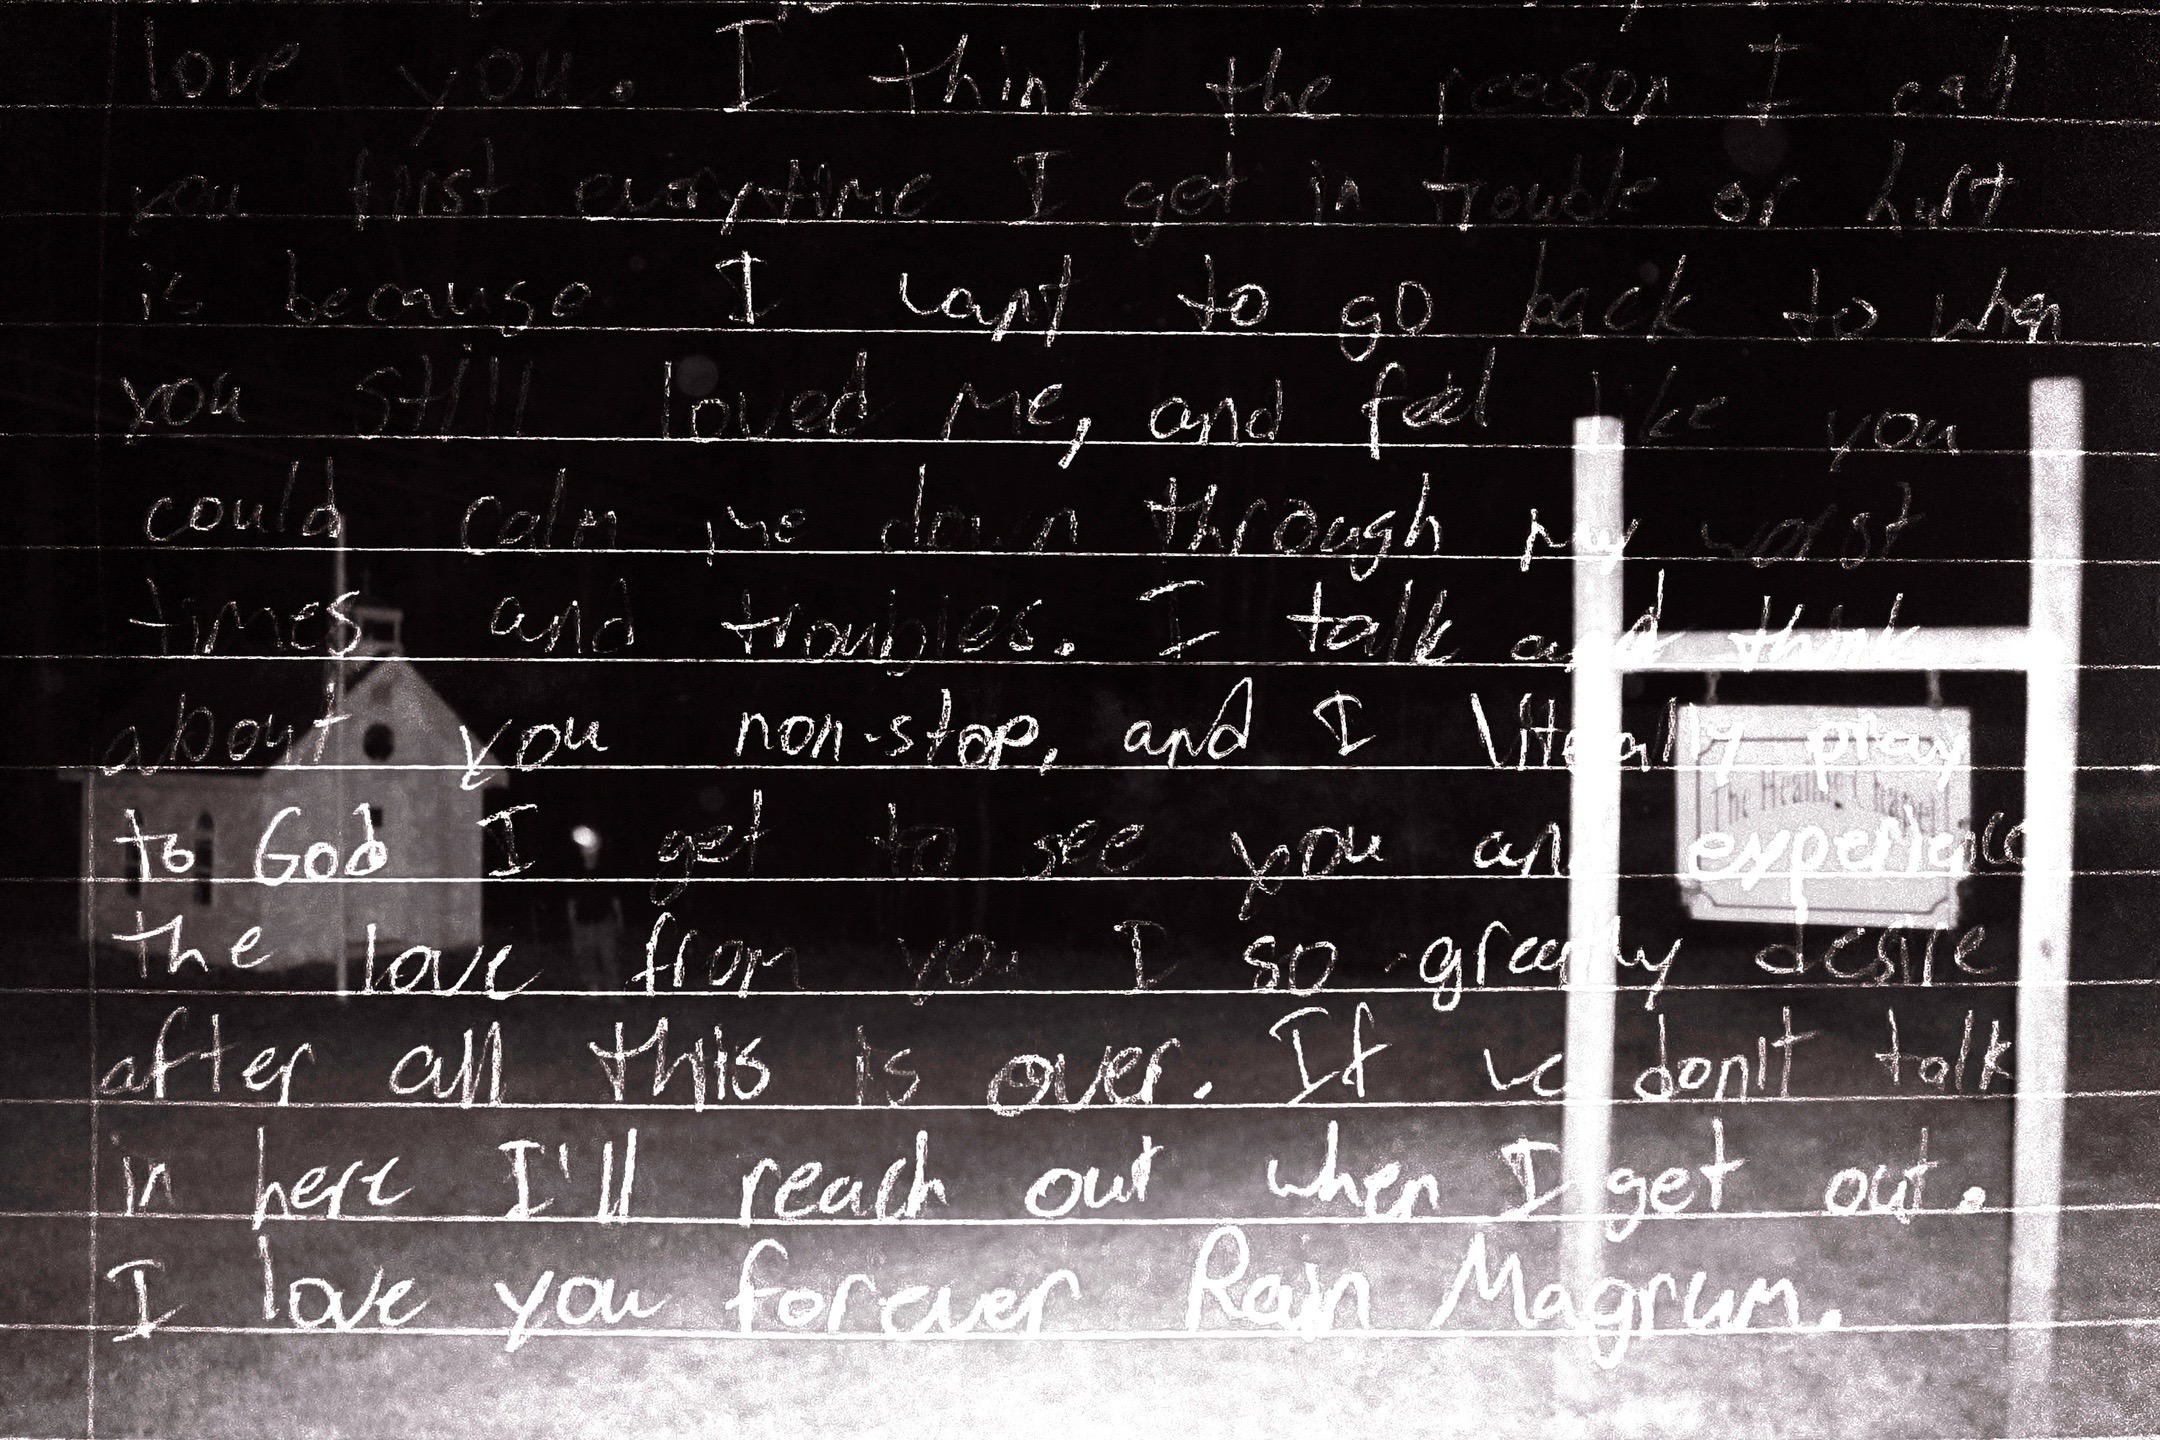 love you. I think the reason I call
you first everytime I get in trouble or hurt
is because I want to go back to when
you still loved me, and feel like you
could calm me down through my worst
times and troubles. I talk and think
about you non-stop, and I literally pray
to God I get to see you and experience
the love from you I so greatly desire
after all this is over. If we don't talk
in here I'll reach out when I get out.
I love you forever Rain Magrum.
The Healing Chapel